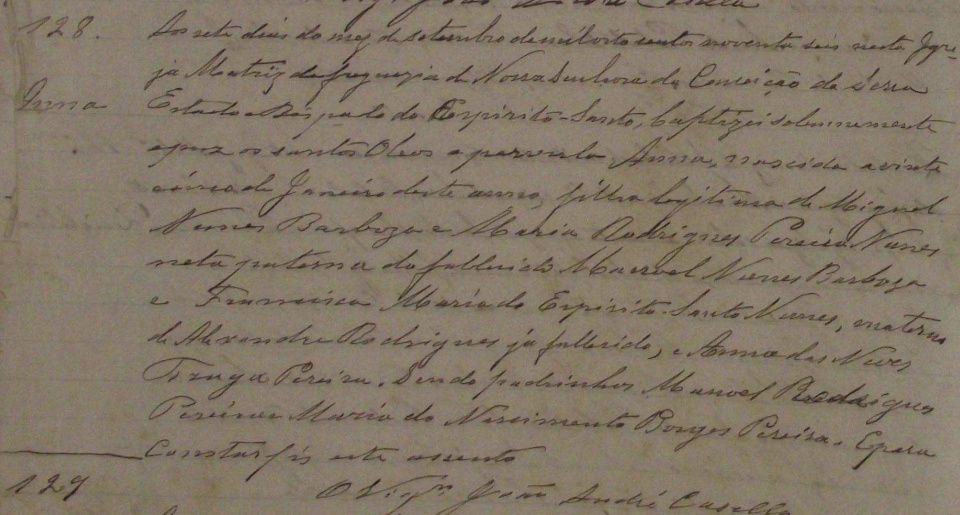 João André Casella
128. Aos sete dias do mez de setembro de mil oito centos noventa seis nesta Igre-
ja Matriz da freguezia de Nossa Senhora da Conceição da Serra
Anna Estado e Bispado do Espirito-Santo, baptizei solemnemente
e puz os santos Oleos a parvula Anna, nascida a vinte
cinco de Janeiro deste anno, filha legitima de Miguel
Nunes Barboza e Maria Rodrigues Pereira Nunes
neta paterna do fallecido Manoel Nunes Barboza
e Francisca Maria do Espirito-Santo Nunes, materna
de Alexandre Rodrigues já fallecido, e Anna das Neves
Fraga Pereira. Sendo padrinhos Manoel Rodrigues
Pereira e Maria do Nascimento Borges Pereira. E para
Constar fiz este assento
129 O Vigrº João André Casella